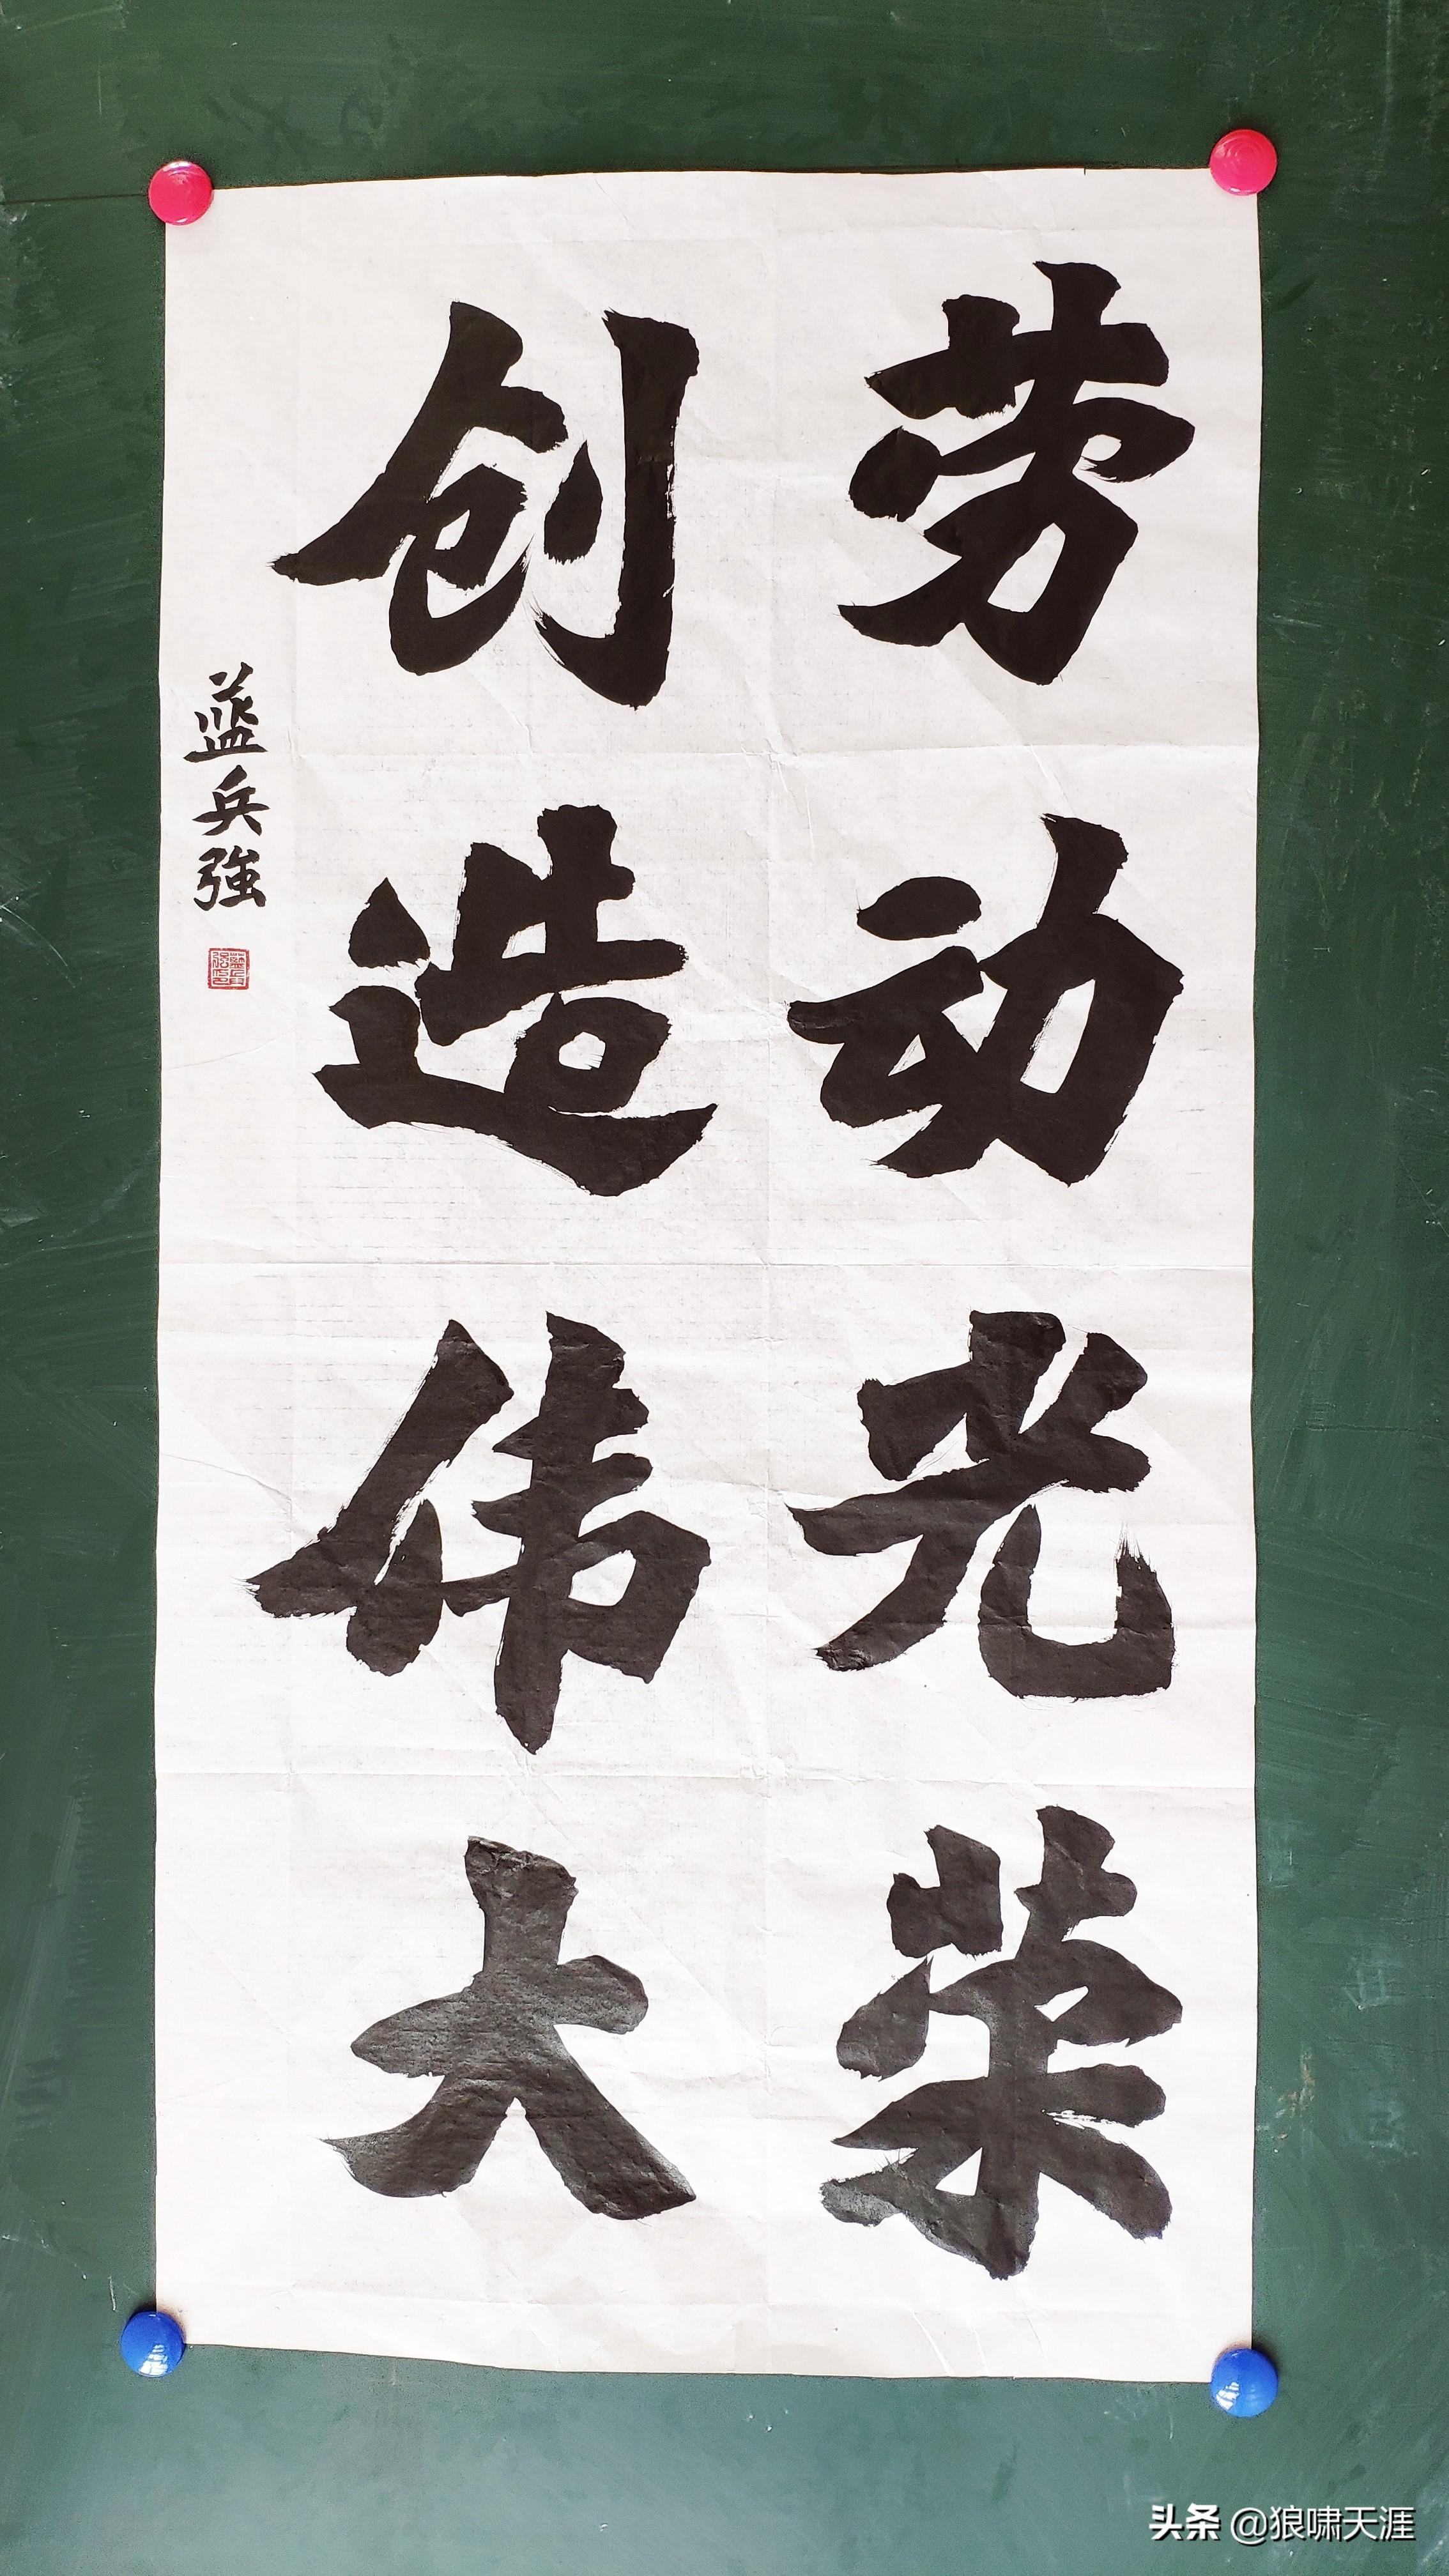 劳动光荣
创造伟大
蓝兵強
头条 @狼啸天涯